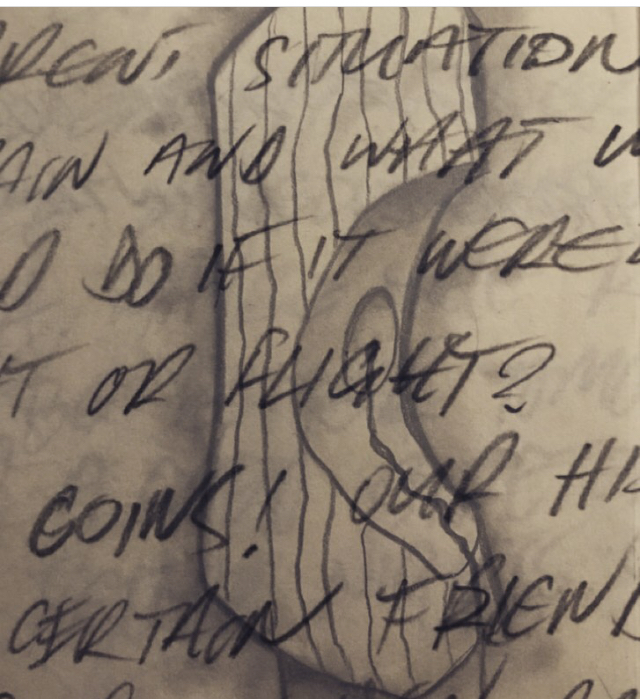 RENT SITUATION
AIN AND WHAT W
D DO IF IT WERE
T OR FLIGHT?
GOING! OUR HI
CERTAIN FRIEND